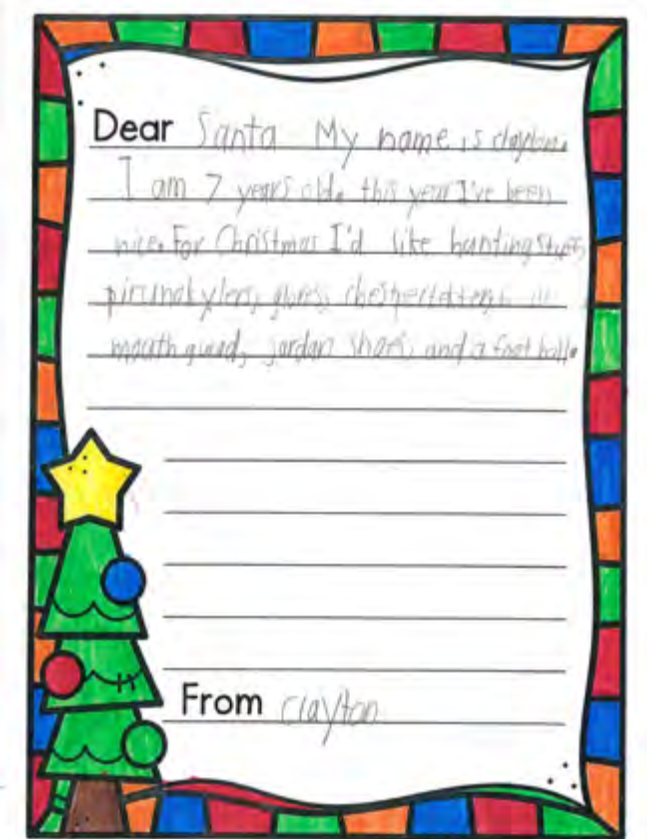 Dear Santa My name is clayton.
I am 7 years old. this year I've been
nice. For Christmas I'd like hunting stuff,
mouth guard, jordan shoes, and a foot ball.
From clayton